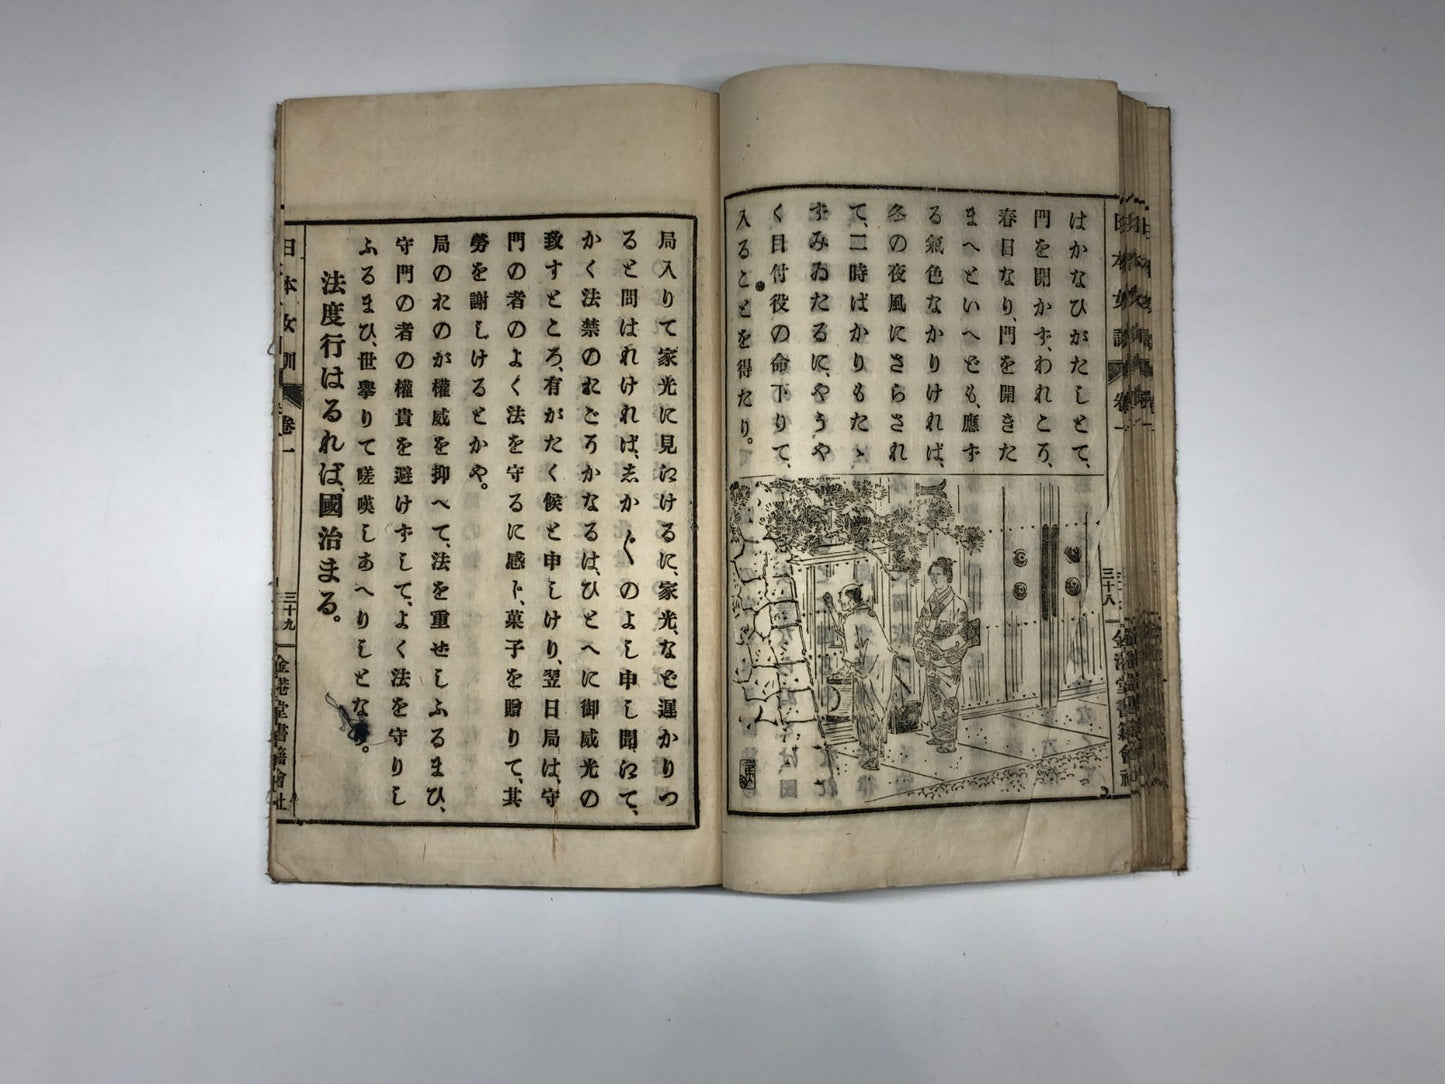 はかなひがたしとて、
門を開かず、われこそ、
春日なり、門を開きた
まへといへども、應ず
る氣色なかりければ、
冬の夜風にさらされ
て、二時ばかりもたゝ
ずみゐたるに、やうや
く目付役の命下りて、
入ることを得たり。
三十八
金港堂書籍會社
局入りて家光に見江けるに、家光、など遲かりつ
ると問はれければ、志か〲のよし申し聞江て、
かく法禁のおごそかなるは、ひとへに御威光の
致すところ、有がたく候と申しけり、翌日局は、守
門の者のよく法を守るに感ト、菓子を贈りて、其
勞を謝しけるとかや。
局のおのが權威を抑へて、法を重せしふるまひ、
守門の者の權貴を避けずして、よく法を守りし
ふるまひ、世擧りて嗟嘆しあへりしとなり。
法度行はるれば、國治まる。
日本女訓
卷一
三十九
金港堂書籍會社